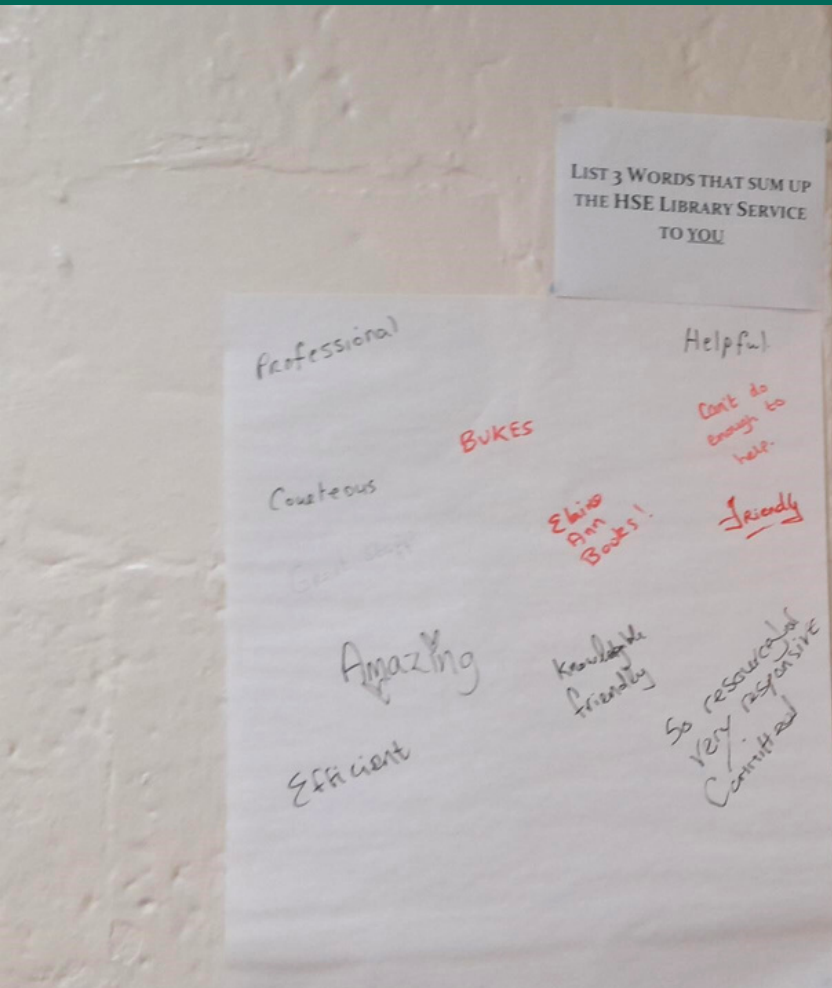 LIST 3 WORDS THAT SUM UP
THE HSE LIBRARY SERVICE
TO YOU
Professional
Helpful
BUKES
Can't do
enough to
help.
Courteous
Ann
Books!
Friendly
Amazing
Knowledgable
friendly
So resourceful
very responsive
Committed
Efficient